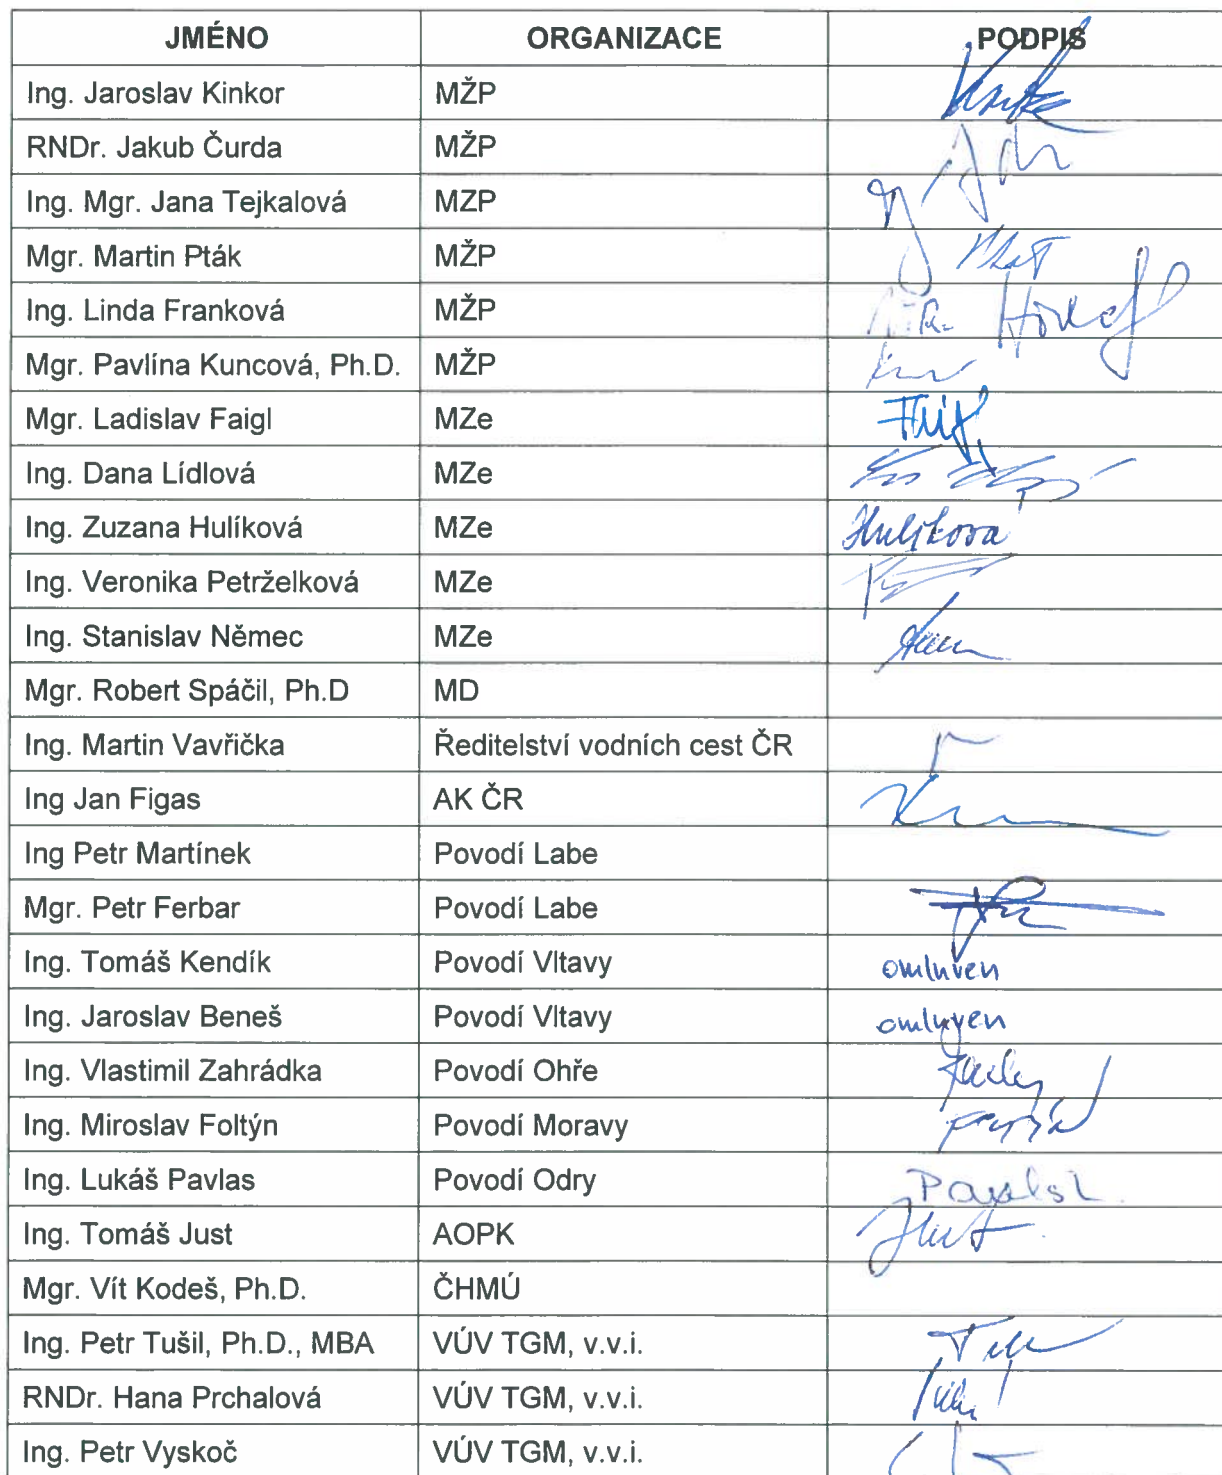 JMÉNO ORGANIZACE PODPIS
Ing. Jaroslav Kinkor MŽP
RNDr. Jakub Čurda MŽP
Ing. Mgr. Jana Tejkalová MZP
Mgr. Martin Pták MŽP
Ing. Linda Franková MŽP
Mgr. Pavlína Kuncová, Ph.D. MŽP
Mgr. Ladislav Faigl MZe
Ing. Dana Lídlová MZe
Ing. Zuzana Hulíková MZe Hulíkova
Ing. Veronika Petrželková MZe
Ing. Stanislav Němec MZe
Mgr. Robert Spáčil, Ph.D MD
Ing. Martin Vavřička Ředitelství vodních cest ČR
Ing Jan Figas AK ČR
Ing Petr Martínek Povodí Labe
Mgr. Petr Ferbar Povodí Labe
Ing. Tomáš Kendík Povodí Vltavy omluven
Ing. Jaroslav Beneš Povodí Vltavy omluven
Ing. Vlastimil Zahrádka Povodí Ohře
Ing. Miroslav Foltýn Povodí Moravy
Ing. Lukáš Pavlas Povodí Odry
Ing. Tomáš Just AOPK Just
Mgr. Vít Kodeš, Ph.D. ČHMÚ
Ing. Petr Tušil, Ph.D., MBA VÚV TGM, v.v.i.
RNDr. Hana Prchalová VÚV TGM, v.v.i.
Ing. Petr Vyskoč VÚV TGM, v.v.i.